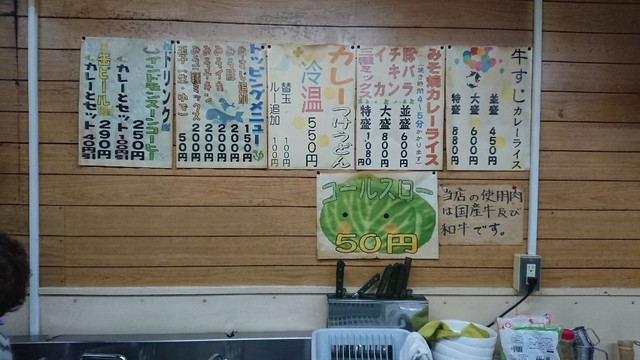 牛すじカレーライス
並盛 450円
大盛 600円
特盛 880円
みそ焼カレーライス
豚バラ
チキン
イカ
三種ミックス
並盛 600円
大盛 800円
特盛 1080円
カレーつけうどん
冷 温 550円
替玉 100円
ルー追加 100円
トッピングメニュー
みそすじ追加 150円
みそ豚 200円
みそイカ 200円
みそチキン 200円
みそ三種ミックス 200円
ドリンク
250円
カレーとセット 100円引
缶ビール 290円
カレーとセット 40円引
コールスロー
50円
当店の使用肉
は国産牛及び
和牛です。